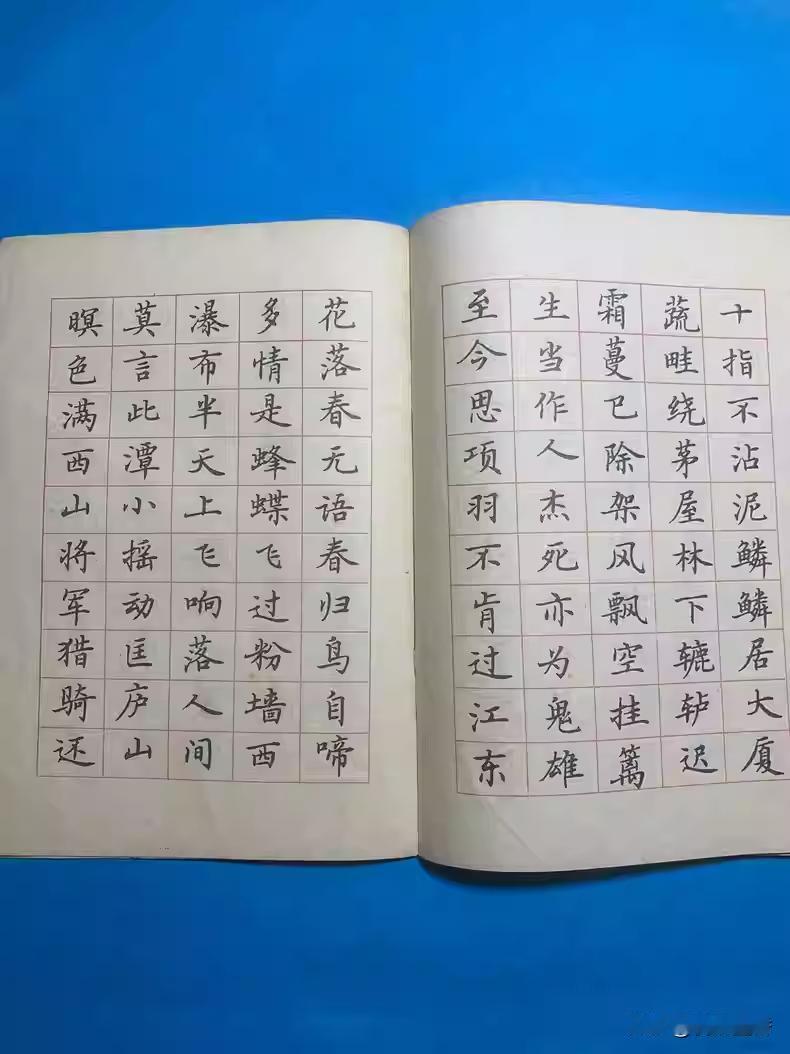 十指不沾泥鳞鳞居大厦
蔬畦绕茅屋林下辘轳迟
霜蔓已除架风飘空挂篱
生当作人杰死亦为鬼雄
至今思项羽不肯过江东
花落春无语春归鸟自啼
多情是蜂蝶飞过粉墙西
瀑布半天上飞响落人间
莫言此潭小摇动匡庐山
暝色满西山将军猎骑还